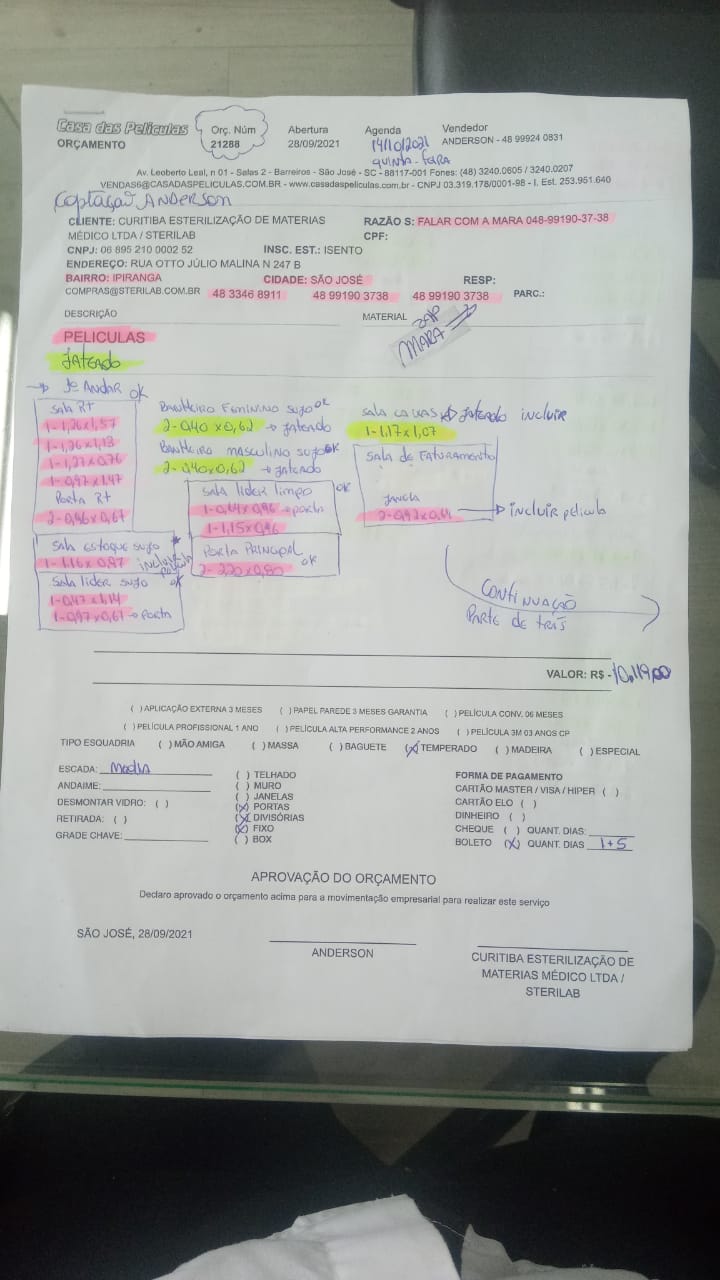 Casa das Películas
ORÇAMENTO
Orç. Núm
21288
Abertura
28/09/2021
Agenda
14/10/2021
QUINTA-FEIRA
Vendedor
ANDERSON - 48 99924 0831
Av. Leoberto Leal, n 01 - Salas 2 - Barreiros - São José - SC - 88117-001 Fones: (48) 3240.0605 / 3240.0207
VENDAS6@CASADASPELICULAS.COM.BR - www.casadaspeliculas.com.br - CNPJ 03.319.178/0001-98 - I. Est. 253.951.640
Captação ANDERSON
CLIENTE: CURITIBA ESTERILIZAÇÃO DE MATERIAS
MÉDICO LTDA / STERILAB
RAZÃO S: FALAR COM A MARA 048-99190-37-38
CPF:
CNPJ: 06 895 210 0002 52
INSC. EST.: ISENTO
ENDEREÇO: RUA OTTO JÚLIO MALINA N 247 B
BAIRRO: IPIRANGA
CIDADE: SÃO JOSÉ
RESP:
COMPRAS@STERILAB.COM.BR
48 3346 8911
48 99190 3738
48 99190 3738
PARC.:
DESCRIÇÃO
MATERIAL
ZAP
MARA
PELICULAS
JATEADO
ANDAR OK
Sala RT
1-1,26x1,57
1-1,26x1,13
1-1,27x0,76
1-0,97x1,47
PORTA RT
2-0,96x0,67
Sala Estoque sujo
1-1,16x0,87 incluir
Sala lider sujo OK
1-0,47x1,14
1-0,97x0,61 → porta
BANHEIRO FEMININO SUJO OK
2-0,40x0,62 → Jateado
BANHEIRO MASCULINO SUJO OK
2-0,40x0,62 → Jateado
Sala lider limpo OK
1-0,64x0,96 → porta
1-1,15x0,96
PORTA PRINCIPAL
2-2,20x0,80 OK
Sala CAIXAS → Jateado incluir
1-1,17x1,07
Sala de Faturamento
JANELA
→ incluir pelicula
CONTINUAÇÃO
PARTE DE TRÁS
VALOR: R$ -10.119,00
( ) APLICAÇÃO EXTERNA 3 MESES ( ) PAPEL PAREDE 3 MESES GARANTIA ( ) PELÍCULA CONV. 06 MESES
( ) PELÍCULA PROFISSIONAL 1 ANO ( ) PELÍCULA ALTA PERFORMANCE 2 ANOS ( ) PELÍCULA 3M 03 ANOS CP
TIPO ESQUADRIA ( ) MÃO AMIGA ( ) MASSA ( ) BAGUETE (X) TEMPERADO ( ) MADEIRA ( ) ESPECIAL
ESCADA: Media
ANDAIME:
DESMONTAR VIDRO: ( )
RETIRADA: ( )
GRADE CHAVE:
( ) TELHADO
( ) MURO
( ) JANELAS
(X) PORTAS
(X) DIVISÓRIAS
(X) FIXO
( ) BOX
FORMA DE PAGAMENTO
CARTÃO MASTER / VISA / HIPER ( )
CARTÃO ELO ( )
DINHEIRO ( )
CHEQUE ( ) QUANT. DIAS:
BOLETO (X) QUANT. DIAS 1+5
APROVAÇÃO DO ORÇAMENTO
Declaro aprovado o orçamento acima para a movimentação empresarial para realizar este serviço
SÃO JOSÉ, 28/09/2021
ANDERSON
CURITIBA ESTERILIZAÇÃO DE
MATERIAS MÉDICO LTDA /
STERILAB